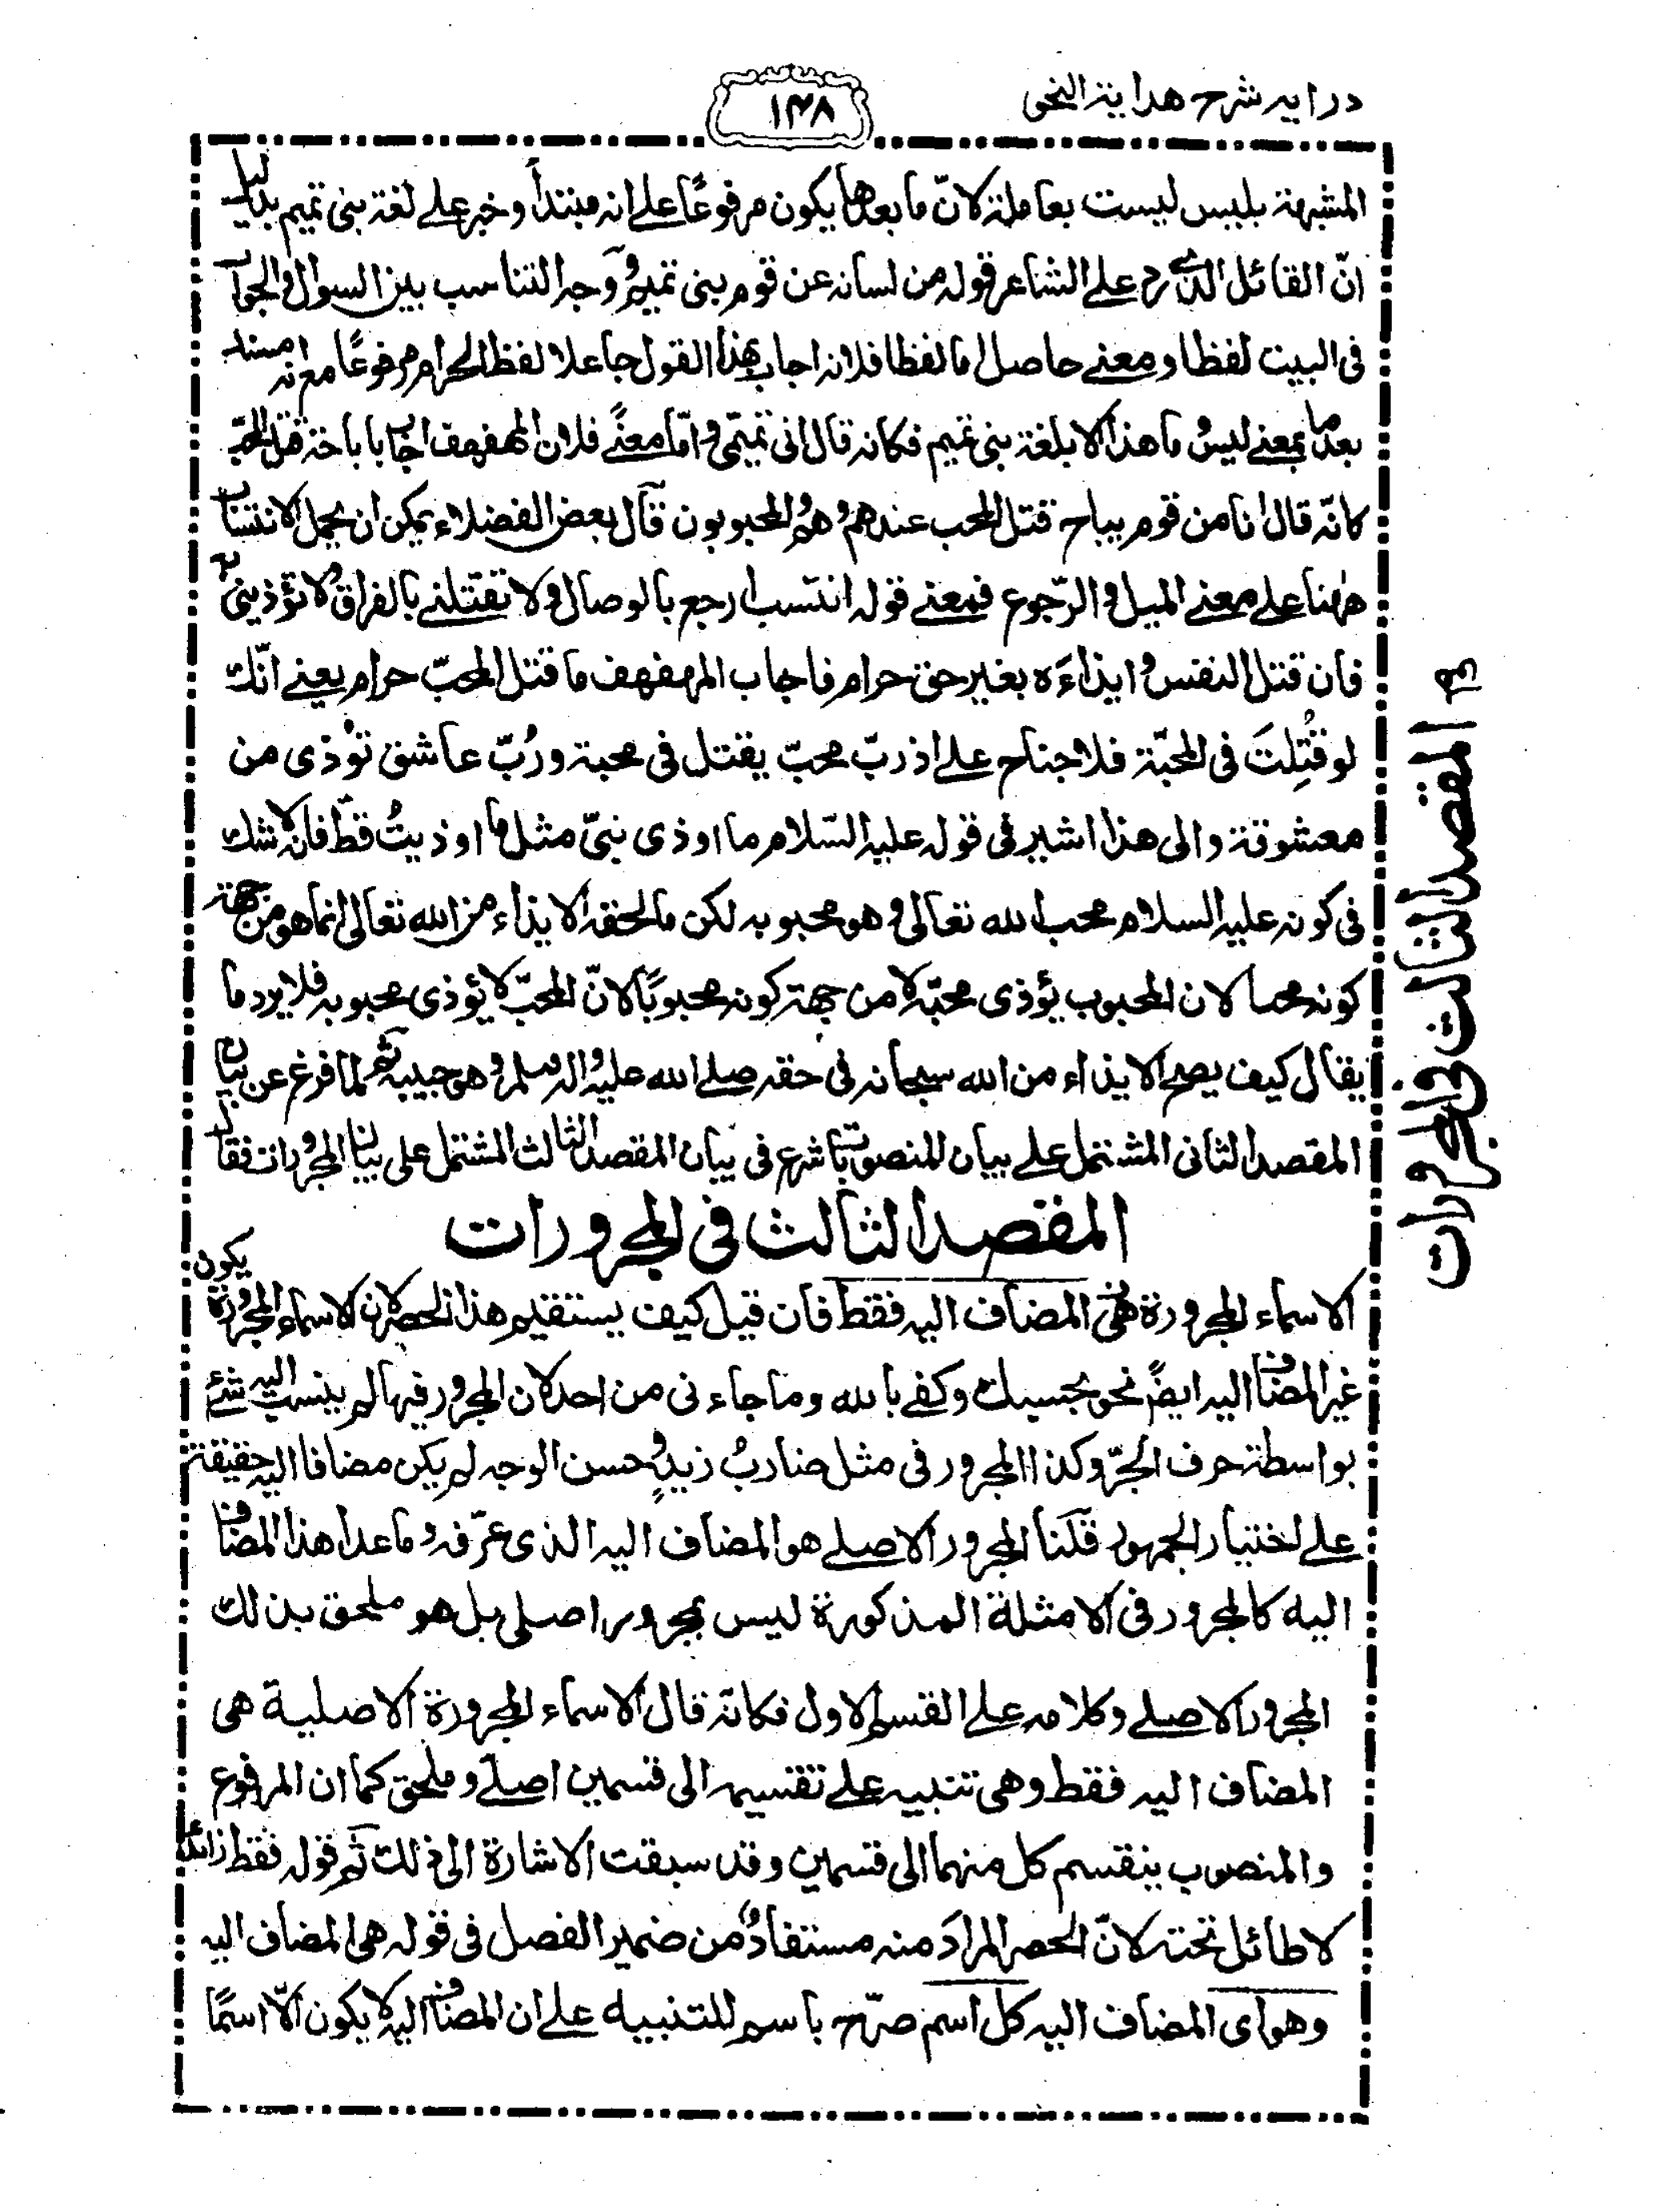 درايه شرح هداية النحو
١٤٨
المشبهة بليس ليست بعاملة لانّ ما بعدها يكون مرفوعًا على انه مبتدأ وخبر على لغة بنى تميم بدليل
انّ القائل الذى على الشاعر قوله من لسانه عن قوم بنى تميم ووجه التناسب بين السوال والجواب
فى البيت لفظا ومعنے حاصل اما لفظا فلانه اجاب بهذا القول جاعلا لفظ الحرام مرفوعًا مع انه مسند
بعد ما بمعنے ليس وما هذا الا بلغة بنى تميم فكانه قال انى تميمّى وامّا معنًے فلان المهفهف اجاب باباحة قتل المحبّ
كانّه قال انا من قوم يباح قتل المحب عندهم وهم المحبوبون قال بعض الفضلاء يمكن ان يحمل الانتساب
ههنا علے معنے الميل والرّجوع فمعنے قوله انتسب ارجع بالوصال ولا تقتلنے بالفراق ولا تؤذينى به
فان قتل النفس وايذاءَه بغير حق حرام فاجاب المهفهف ما قتل المحبّ حرام يعنے انّك
لو قُتِلتَ فى المحبّة فلا جناح علے اذ ربّ محبّ يقتل فى محبة ورُبّ عاشق تؤذى من
معشوقة والى هذا اشير فى قوله عليه السّلام ما اوذى نبىّ مثل ما اوذيتُ قطّ فانه لا شك
فى كونه عليه السلام محب الله تعالى وهو محبوبه لكن ما لحقه الايذاء من الله تعالى انما هو من جهة
كونه محبا لان المحبوب يؤذى محبّه لا من جهة كونه محبوبًا لانّ المحبّ لا يؤذى محبوبه فلا يرد ما
يقال كيف يصح الايذاء من الله سبحانه فى حقه صلے الله عليه واله وسلم وهو حبيبه ثم لما فرغ عن بيان
المقصد الثانى المشتمل علے بيان المنصوبات شرع فى بيان المقصد الثالث المشتمل على بيان المجرورات فقال
المقصد الثالث فى المجرورات
الاسماء المجرورة هى المضاف اليه فقط فان قيل كيف يستقيم هذا الحصر لان الاسماء المجرورة يكون
غير المضاف اليه ايضًا نحو بحسبك وكفے بالله وما جاءنى من احد لان المجرور فيها لم ينسب اليه شئ
بواسطة حرف الجرّ وكذا المجرور فى مثل ضاربُ زيدٍ وحسن الوجه لم يكن مضافا اليه حقيقة
علے اختيار الجمهور قلنا المجرور الاصلے هو المضاف اليه الذى عرّفه وما عدا هذا المضاف
اليه كالمجرور فى الامثلة المذكورة ليس بمجرور اصلى بل هو ملحق بذلك
المجرور الاصلے وكلامه علے القسم الاول فكانّه قال الاسماء المجرورة الاصلية هى
المضاف اليه فقط وهى تنبيه علے تقسيمه الى قسمين اصلے وملحق كما ان المرفوع
والمنصوب ينقسم كل منهما الى قسمين وقد سبقت الاشارة الى ذلك ثم قوله فقط زائد
لا طائل تحته لانّ الحصر المرادَ منه مستفادٌ من ضمير الفصل فى قوله هى المضاف اليه
وهو اى المضاف اليه كل اسم صرّح باسم للتنبيه علے ان المضاف اليه لا يكون الّا اسمًا
المقصد الثالث فى المجرورات